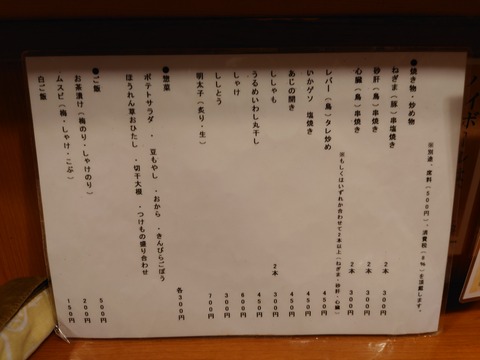 ※別途、席料(500円)、消費税(8%)を頂戴します。
●焼き物・炒め物
ねぎま(豚)串塩焼き 2本 300円
砂肝(鳥)串焼き 2本 300円
心臓(鳥)串焼き 2本 300円
※もしくはいずれか合わせて2本以上(ねぎま・砂肝・心臓)
レバー(鳥)タレ炒め 450円
いかゲソ 塩焼き 450円
あじの開き 450円
ししゃも 2本 300円
うるめいわし丸干し 450円
しゃけ 600円
ししとう 300円
明太子(炙り・生) 700円
●惣菜 各300円
ポテトサラダ ・豆もやし ・おから ・きんぴらごぼう
ほうれん草おひたし ・切干大根 ・つけもの盛り合わせ
●ご飯
お茶漬け(梅のり・しゃけのり) 500円
ムスビ(梅・しゃけ・こぶ) 200円
白ご飯 100円